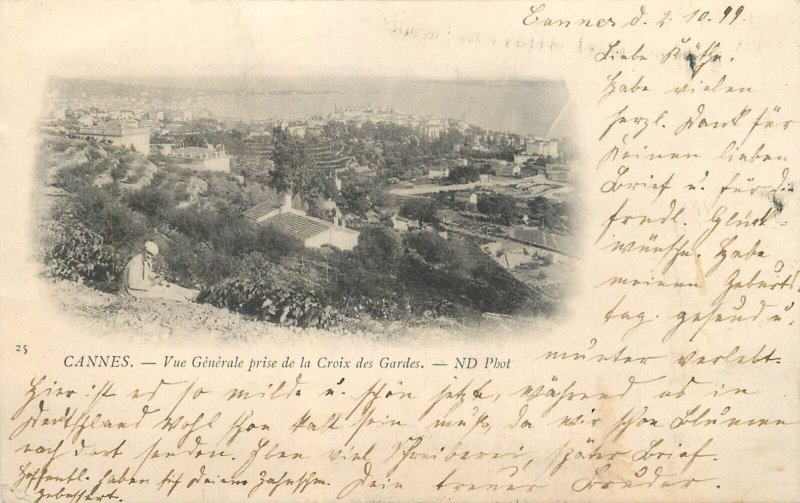 Cannes d. 2.10.99
Liebe Käthe!
Habe vielen
herzl. Dank für
Deinen lieben
Brief u. für d.
frndl. Glück-
wünsche. Habe
meinen Geburts-
tag gesund u.
munter verlebt.
25
CANNES. — Vue Générale prise de la Croix des Gardes. — ND Phot
Hier ist es so milde u. schön jetzt, während es in
Deutschland wohl schon kalt sein muß, da wir schon Blumen
nach dort senden. Eben viel Schreiberei, später Brief.
Hoffentl. haben sich Deine Zahnschm. Dein treuer Bruder.
gebessert.